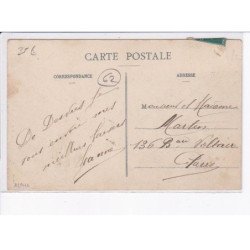 35€
CARTE POSTALE
CORRESPONDANCE
62
ADRESSE
De Desvres je
vous envoie mes
meilleurs baisers
Jeanne
Monsieur et Madame
Martin
136 Bd Voltaire
Paris